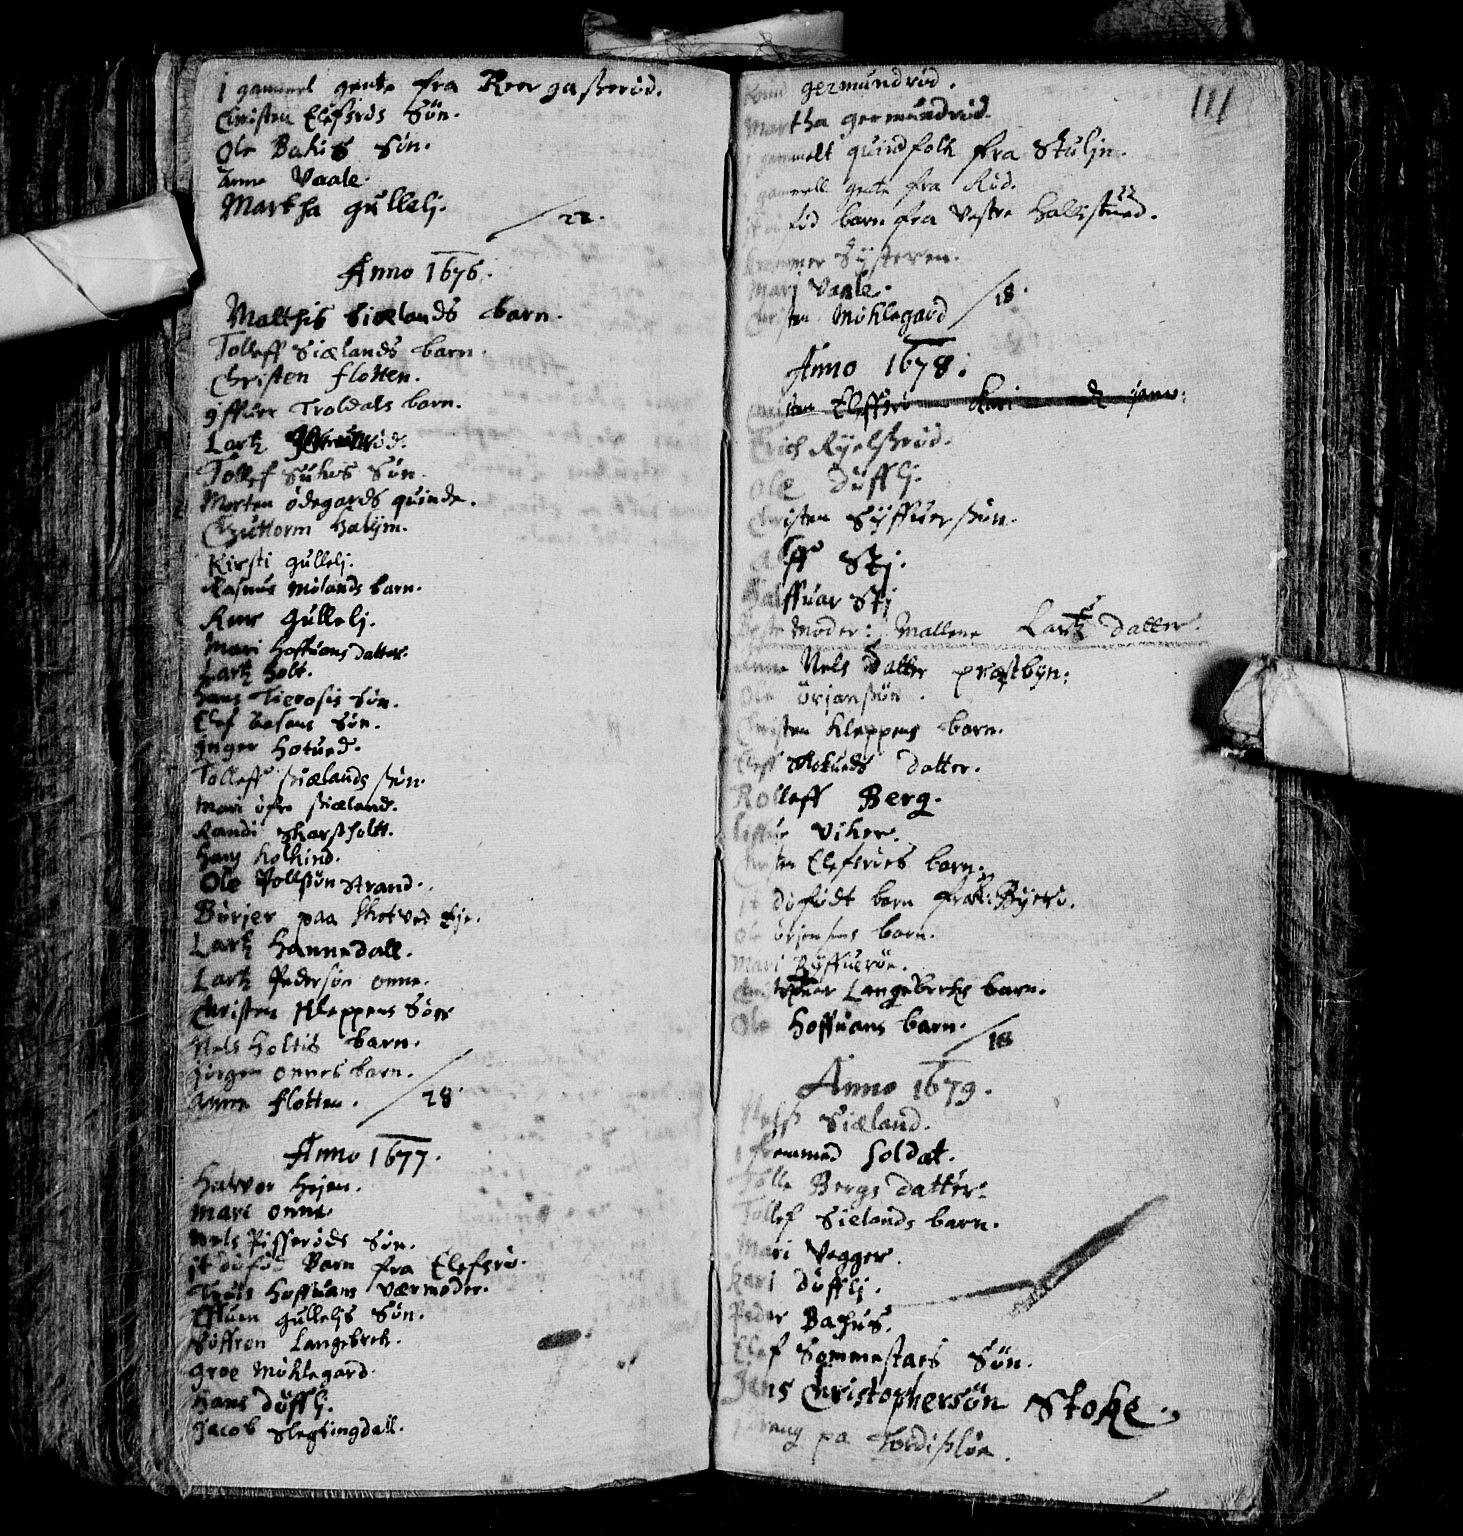 1 gammel gente fra Reer gasserød.
Christen Elefsrøs Søn.
Ole Bakus Søn.
Anne Vaale.
Martha gullelj.
/ 22.
Anno 1676.
Malthis Siælands barn.
Tolleff Siælands barn.
Christen flotten.
gffuer Troldals barn.
Lartz
Tollef Sukes Søn.
Morten ødegards quinde.
Guttorm Halijm.
Kirsti gullelj.
Rasmus Mølands barn.
Anne Gullelj.
Mari Hoffuans datter.
Lartz holt.
Hans Søn.
Elef Søn.
Inger Hotued.
Tolleff siælands søn.
Mari øfre siæland.
Randi Skarsholtt.
Hans kolkind.
Ole Pollsøn Strand.
Børier paa Skotved Eje.
Lartz Hannedall.
Lartz Pedersøn onne.
Christen Kleppens Søn
Nels Holtes barn.
Jørgen onnes barn.
Anne flotten. / 28
Anno 1677.
Halvor Højen.
Mari onne.
Nels Pifferøds Søn.
it døfød Barn fra Elefsrø.
Truls Hoffuans værmoder.
Effuen gulleljs Søn.
Søffren Langebrek.
groe Møklegard.
Hans Düfflj.
Jacob Slegtingdall.
111
germundrød.
Martha germundrød.
1 gammelt quindfolk fra Skuljn.
1 gammell gente fra Rød.
it døfød barn fra Vestre Hallistued.
Sÿsteren.
Mari Vaale.
Christen Møklegard / 18.
Anno 1678.
Christen Eleffsrø
Erich Ryelssrød.
Ole Düfflj.
Christen Sÿffuerssøn.
Alff Skj.
Halffuar Skj
Beste Moder: Mallene Lartz Datter.
Anne Nels Datter præstbyn.
Ole ørjanssøn.
Christen Kleppens barn.
Eleff Skotueds Datter.
Rolleff Berg.
Viker.
Christen Elefsrøes barn.
it døfødt barn fra Byerø.
Ole barn.
Mari
Christopher Langebreks barn.
Ole Hoffuans barn. / 18
Anno 1679.
Nelss Siæland.
1 fremmed soldat.
Tolle Bergs Datter.
Tollef Sielands barn.
Mari Vegger.
Kari Düfflj.
Peder Bakus.
Elef Sommestaes Søn.
Jens Christophersøn Stoke.
1 dreng pa Tordissløn.